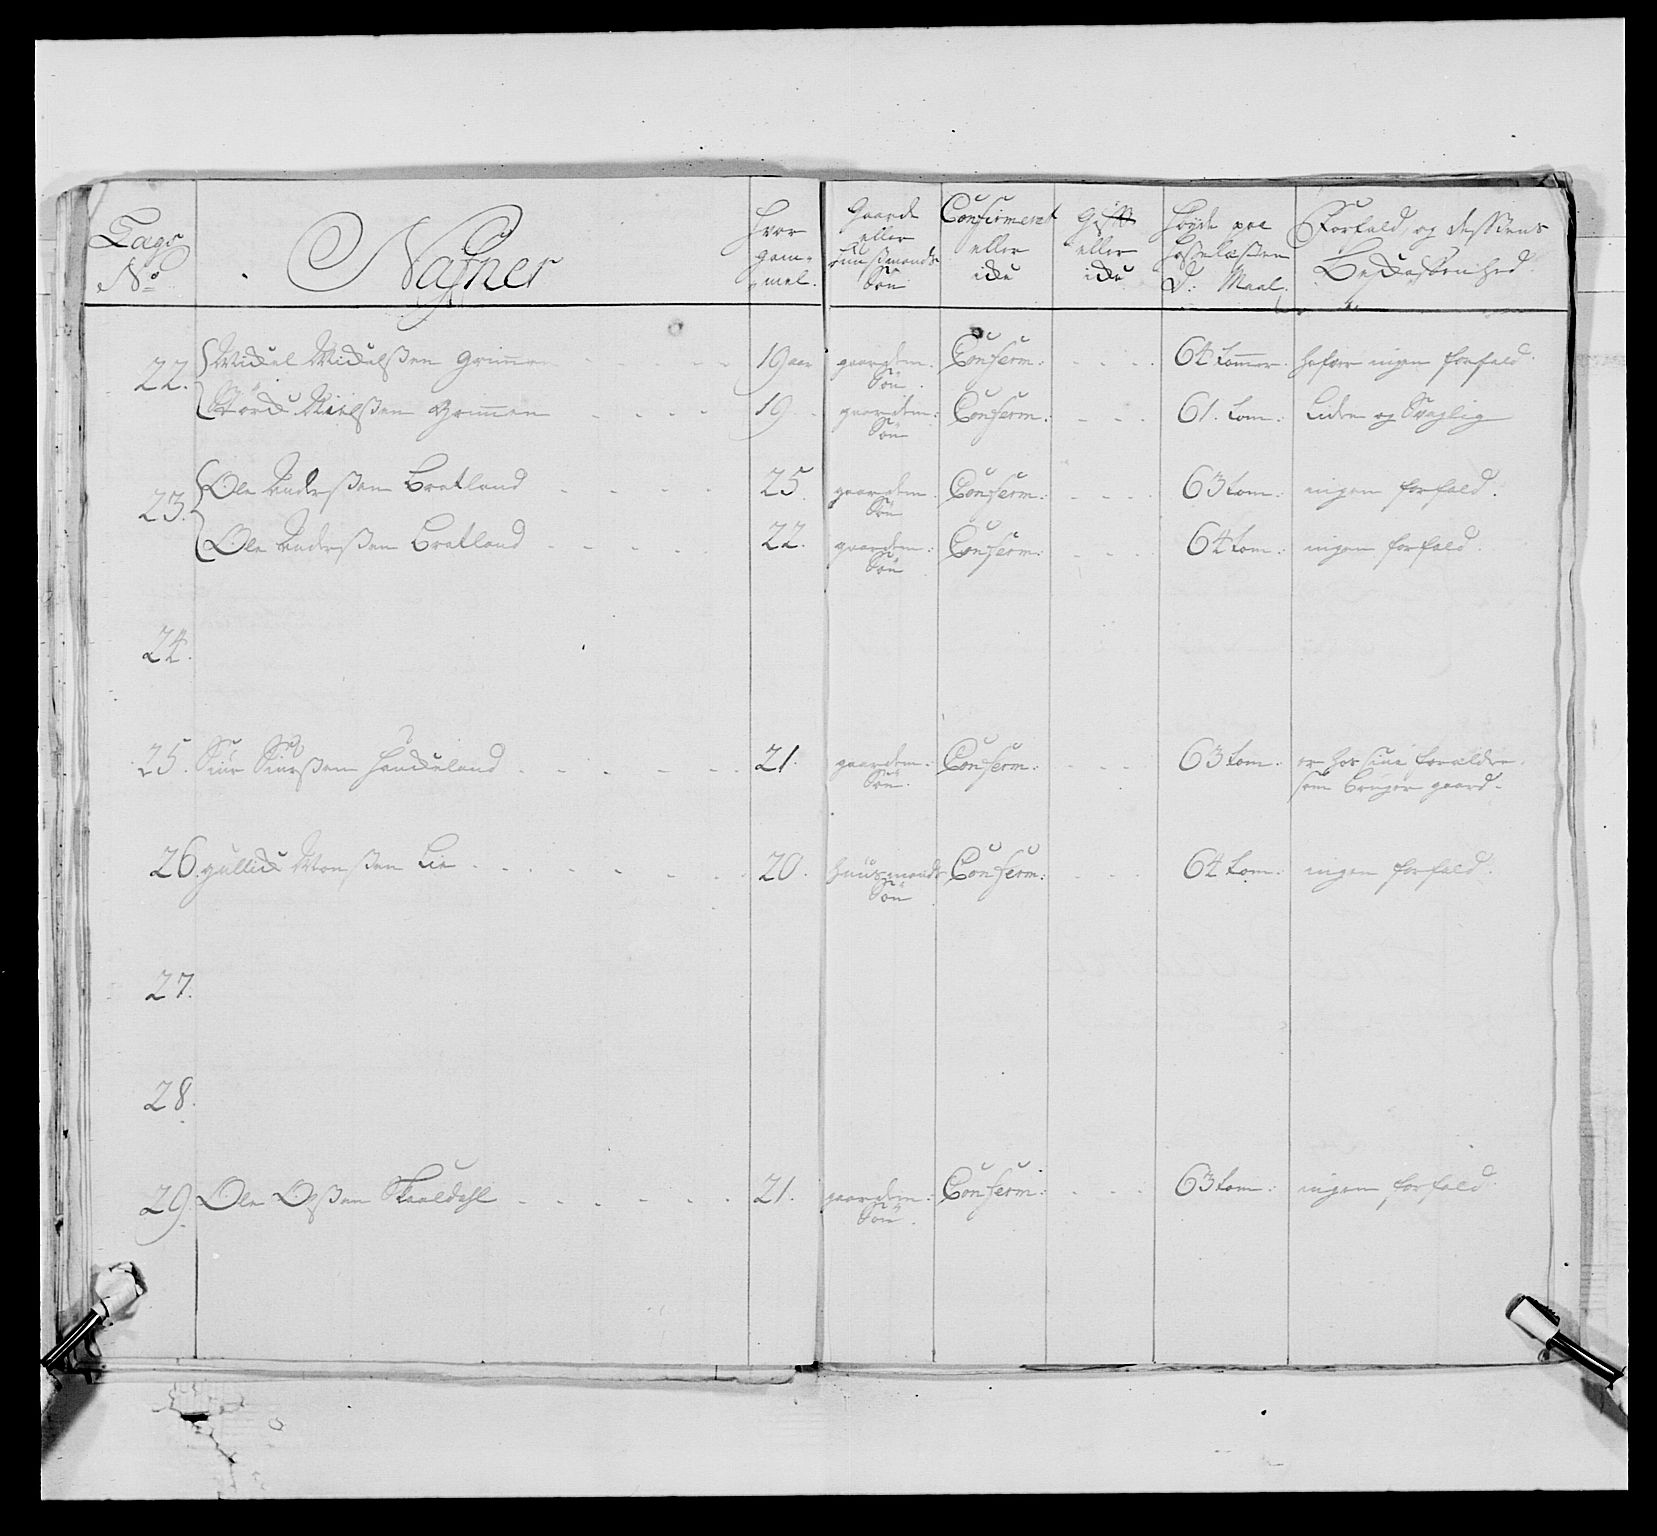 Lags No Nafner Hvor gam- mel. Gaard eller Huusmands Søn Confirmeret eller icke Gift eller icke Høyde paa Hoselæsten D: Maal Forfald, og dessens Beskaffenhed
22. Mickel Mickelsen Grimmen - - - 19 aar gaardem. Søn. Conferm: - - - 64 tommer. hafver ingen forfald.
Størck Nielsen Grimmen - - - - 19 - gaardem: Søn Conferm: - - - 61. tom: Liden og Svaglig
23. Ole Andersen Bratland - - - - 25. gaardem. Søn Conferm: - - - 63 tom: ingen forfald.
Ole Andersen Bratland - - - - 22. gaardem: Søn Conferm: - - - 64 tom: ingen forfald.
24.
25. Siur Siursen Hauckeland - - - - - - 21. gaardem: Søn. Conferm: - - - 63 tom: er hos sine forældre,
som bruger gaard.
26. gullick Monsen Lie - - - - - - - 20. huusmands Søn Conferm: - - - 64 tom: ingen forfald.
27.
28.
29. Ole Olsen Skaaldahl - - - - - - 21. gaardem: Søn. Conferm: - - - 63 tom: ingen forfald.